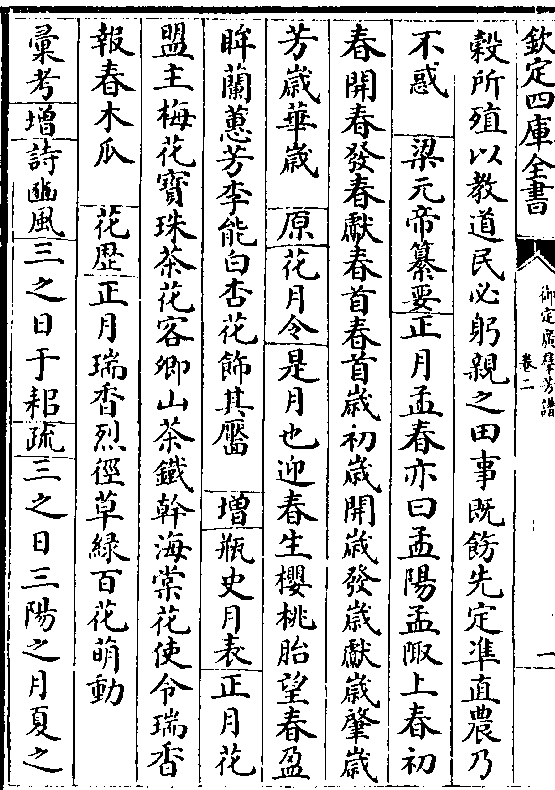 欽定四庫全書
御定廣羣芳譜
卷二
一
穀所殖以教道民必躬親之田事既飭先定準直農乃
不惑 梁元帝纂要正月孟春亦曰孟陽孟陬上春初
春開春發春獻春首春首歲初歲開歲發歲獻歲肇歲
芳歲華歲 原花月令是月也迎春生櫻桃胎望春盈
眸蘭蕙芳李能白杏花飾其靨 增瓶史月表正月花
盟主梅花寶珠茶花客卿山茶鐵幹海棠花使令瑞香
報春木瓜 花歴正月瑞香烈徑草緑百花萌動
彙考增詩豳風三之日于耜疏三之日三陽之月夏之